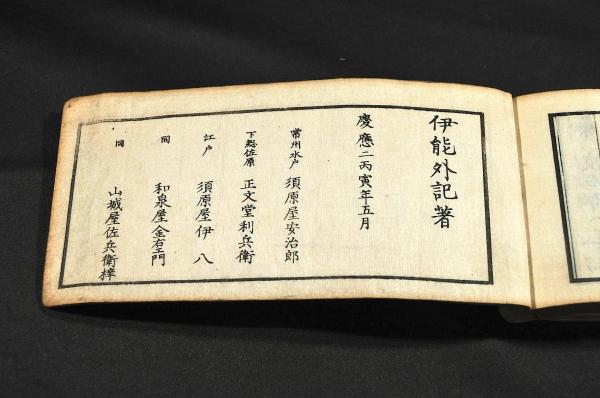 伊能外記著
慶應二丙寅年五月
常州水戸 須原屋安治郎
下総佐原 正文堂利兵衛
江戸 須原屋伊八
同 和泉屋金右エ門
同 山城屋佐兵衛梓